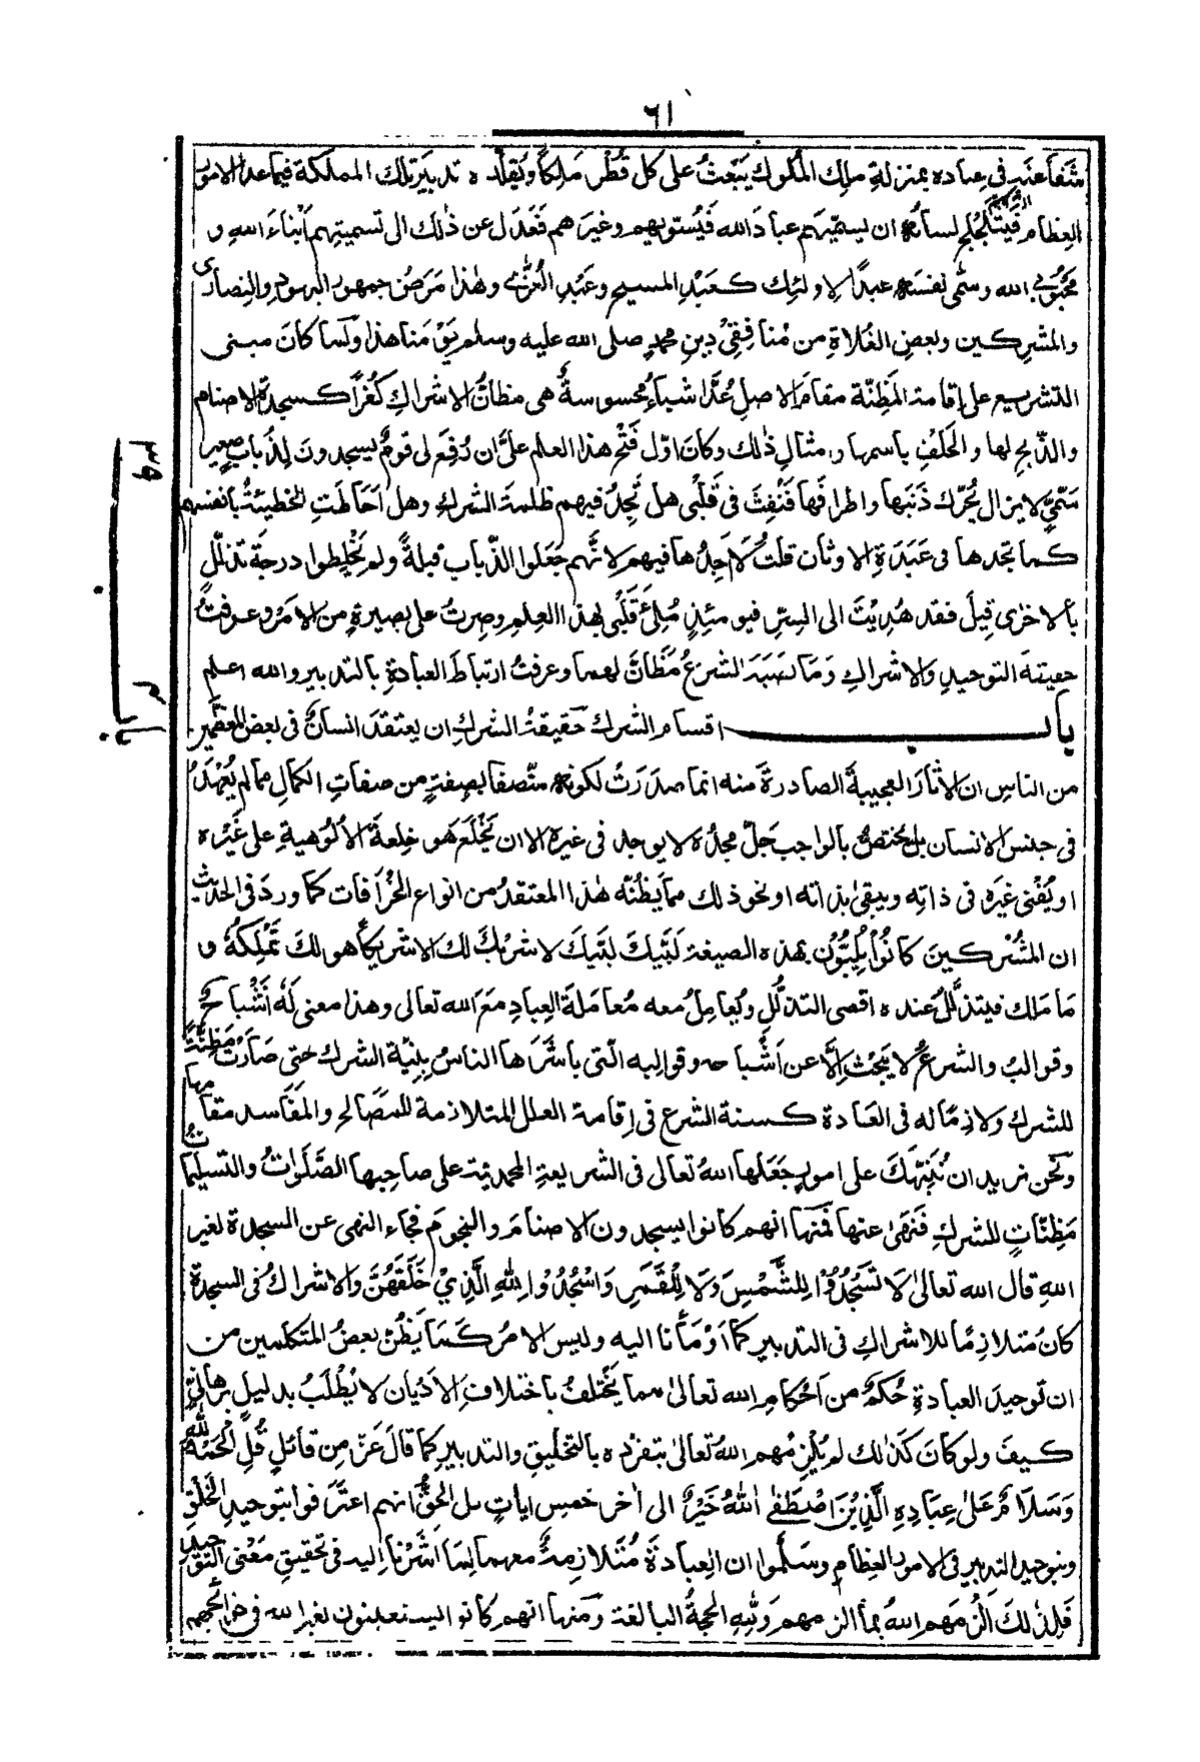 ٦١
شفاعتهم في عباده بمنزلةِ ملِك المُلُوك يَبْعَثُ على كل قُطْرٍ مَلِكاً ويُقلِّده تدبيَر تلك المملكة فيما عدا الامورِ
العِظامِ فيَتَلَجْلج لسانُه ان يسمّيَهم عبادَ الله فَيُستوِيهم وغيرَهم فَعَدَل عن ذٰلك الى تسميتِهم اَبْناءَ اللهِ و
مَحْبُوبي الله وسمّى نفسَه عبداً لاولئِك كعَبْدِ المسيحِ وعَبْدِ العُزّٰى وهٰذا مَرَضُ جمهورِ اليهودِ والنصارٰى
والمشرِكين وبعضِ الغُلاةِ من مُنافِقِيْ دينِ محمدٍ صلى الله عليه وسلم يَوْمَنا هذا ولما كانَ مبنى
التشريعِ على اِقامة المَظِنّة مقامَ الاصلِ عُدَّ اشياءُ محسوسةٌ هى مظانُّ الاشراكِ كُفْراً كسجدةِ الاصنام
والذَّبحِ لها والحَلْفِ باسمها وامثالِ ذٰلك وكانَ اوّلَ فَتْحِ هذا العلم علىَّ ان رُفِعَ لى قومٌ يسجدونَ لِذُبابٍ صغيرٍ
سَمّيٍّ لايزال يُحرِّك ذَنَبَها واطرافَها فَنُفِثَ فى قَلْبى هل تجِدُ فيهم ظلمةَ الشركِ وهل اَحَاطَتِ الخطيئةُ بانفسهم
كما تجدها فى عَبَدَةِ الاوثان قلتُ لا اَجِدُها فيهم لانَّهم جَعَلوا الذُّبابَ قبلةً ولم يَخْلِطوا درجةَ تذلّلٍ
بالاخرٰى قِيلَ فقد هُدِيْتَ الى السِّرِ فيومئِذٍ مُلِئَ قَلْبى بهذا العِلمِ وصِرتُ على بصيرةٍ من الامرِ وعرفتُ
حقيقةَ التوحيدِ والاشراكِ وَمَا نصَبَه الشرعُ مَظَانَّ لهما وعرفتُ ارتباطَ العبادةِ بالتدبيرِ والله اعلم
باب اقسام الشرك حَقيقةُ الشركِ ان يعتقدَ انسانٌ فى بعض المعظّمين
من الناسِ ان الاٰثارَ العجيبةَ الصادرةَ منه انما صدرَتْ لكونِه متّصفا بصِفةٍ من صفاتِ الكمالِ مما لم يُعْهَدْ
فى جنس الانسان بل يختصُّ بالواجبِ جَلَّ مجدُه لايوجد فى غيره الا ان يَخْلَعَ هو خِلعةَ الاُلُوهيةِ على غَيْرِه
او يُفْنىَ غيرَه فى ذاتِه ويبقىٰ بذاته او نحو ذلك مما يظُنّه هٰذا المعتقدُ من انواعِ الخُرافات كما وردَ فى الحديث
ان المشْركينَ كانُوْا يُلبُّوْن بهذه الصيغةِ لَبَّيكَ لبَّيكَ لاشريكَ لك الا شريكًا هو لكَ تَمْلِكُهُ و
مَا مَلك فيتذلَّلُ عنده اقصى التذلُّلِ ويُعامِلُ معه مُعامَلةَ العِبادِ معَ الله تعالى وهذا معنى لَهُ اَشْباحٌ
وقوالبُ والشرعُ لا يَبْحَثُ اِلَّا عن اَشْباحه وقوالبِه الّتى باشَرَها الناسُ بِنِيّة الشرك حتى صَارَتْ مَظِنَّةً
للشرك ولازمًا له فى العَادة كسنة الشرع فى اِقامة العلل المتلازمة للمَصَالح والمفَاسد مقامها
ونحن نريد ان نُنَبِّهَكَ على امورٍ جَعَلها اللهُ تعالى فى الشريعةِ المحمديّة على صاحِبها الصَّلَواتُ والتسليماتُ
مَظِنّاتٍ للشركِ فَنَهىٰ عنها فمنها انهم كانوا يسجدون الاصنامَ والنجومَ فجاءَ النهى عن السجدة لغير
اللهِ قال الله تعالىٰ لَا تَسْجُدُوْا لِلشَّمْسِ وَلَا لِلْقَمَرِ وَاسْجُدُوْا لِلّٰهِ الَّذِيْ خَلَقَهُنَّ والاشراكُ فى السجدة
كانُ متلازِمًا للاشراكِ فى التدبير كما اَوْمَأْنا اليه وليس الامرُ كَمَا يَظُنّ بعضُ المتكلمين من
ان توحيدَ العبادةِ حُكمٌ من اَحْكامِ الله تعالىٰ مما يَخْتلفُ باختلافِ الاَدْيان لا يُطْلَبُ بدليلٍ برهانىٍّ
كيفَ ولو كانَ كذٰلك لم يُلْزِمْهم اللهُ تعالىٰ بتفرُّدِه بالتخليقِ والتدبيرِ كما قالَ عَزَّ مِن قائلٍ قُلِ الْحَمْدُ لِلّٰهِ
وَسَلَامٌ عَلىٰ عِبَادِهِ الَّذِيْنَ اصْطَفىٰ اٰللهُ خَيْرٌ الى اٰخر خمسِ ايات بل الحقُّ انهم اعتَرَفوا بتوحيدِ الخَلْقِ
وبتوحيدِ التدبيرِ فى الامورِ العِظامِ وسَلَّموا ان العِبادةَ مُتَلازِمةٌ معهما لِمَا اَشَرْنا اِليه فى تحقيقِ مَعْنى التوحيدِ
فلِذٰلكَ اَلْزَمَهم اللهُ بما اَلزمهم وَلِلّٰهِ الحجةُ البالغة ومنها انهم كانوا يستعينون بغيرِ الله فى حوائجهم
٣٩
باب ٣